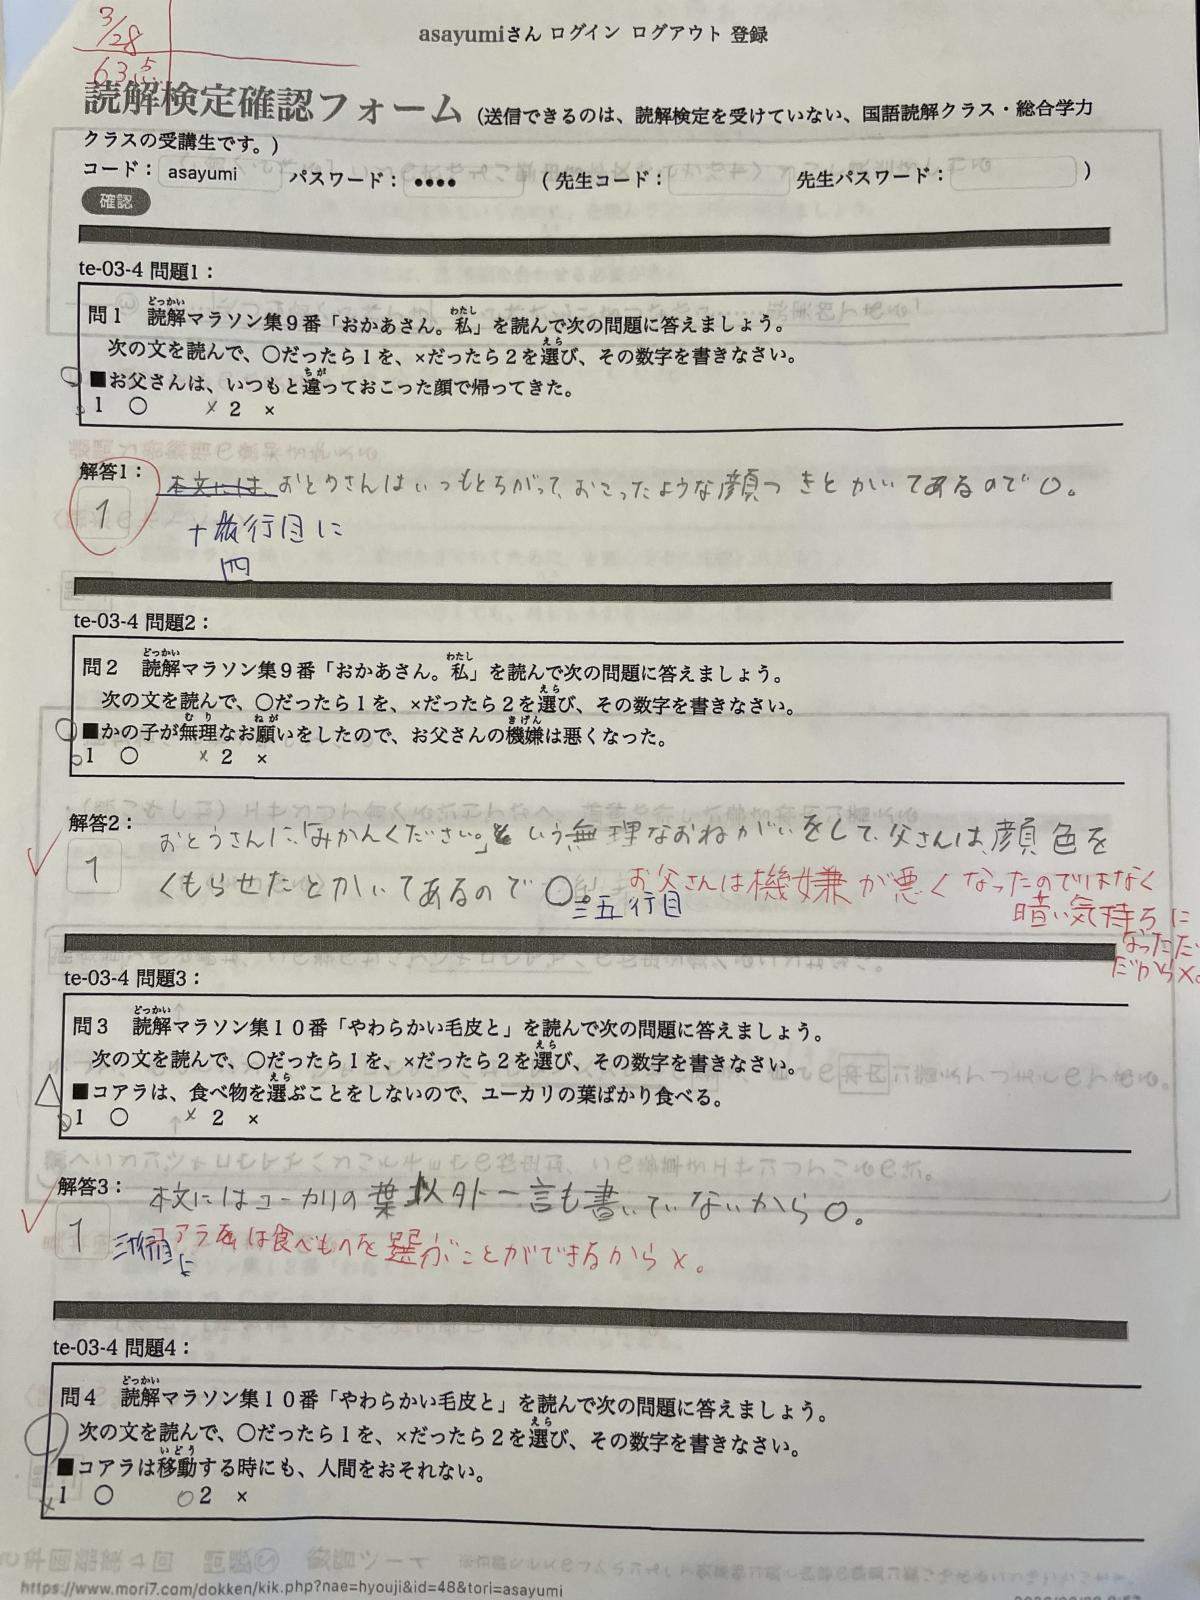 3/28
63点
asayumiさん ログイン ログアウト 登録
読解検定確認フォーム (送信できるのは、読解検定を受けていない、国語読解クラス・総合学力
クラスの受講生です。)
コード： asayumi パスワード： •••• ( 先生コード： 先生パスワード： )
確認
te-03-4 問題1：
問１ 読解マラソン集９番「おかあさん。私」を読んで次の問題に答えましょう。
次の文を読んで、○だったら１を、×だったら２を選び、その数字を書きなさい。
■お父さんは、いつもと違っておこった顔で帰ってきた。
1 ○ × 2 ×
解答1：
1
本文には、おとうさんはいつもとちがって、おこったような顔つきとかいてあるので○。
十四行目に
te-03-4 問題2：
問２ 読解マラソン集９番「おかあさん。私」を読んで次の問題に答えましょう。
次の文を読んで、○だったら１を、×だったら２を選び、その数字を書きなさい。
■かの子が無理なお願いをしたので、お父さんの機嫌は悪くなった。
1 ○ × 2 ×
解答2：
1
おとうさんに、「みかんください。」という無理なおねがいをして、父さんは、顔色を
くもらせたとかいてあるので○。
三五行目
お父さんは機嫌が悪くなったのではなく
暗い気持ちに
なっただ
だから×。
te-03-4 問題3：
問３ 読解マラソン集１０番「やわらかい毛皮と」を読んで次の問題に答えましょう。
次の文を読んで、○だったら１を、×だったら２を選び、その数字を書きなさい。
■コアラは、食べ物を選ぶことをしないので、ユーカリの葉ばかり食べる。
1 ○ × 2 ×
解答3：
1
本文にはユーカリの葉以外一言も書いていないから○。
コアラは食べものを選ぶことができるから×。
te-03-4 問題4：
問４ 読解マラソン集１０番「やわらかい毛皮と」を読んで次の問題に答えましょう。
次の文を読んで、○だったら１を、×だったら２を選び、その数字を書きなさい。
■コアラは移動する時にも、人間をおそれない。
1 ○ ○ 2 ×
https://www.mori7.com/dokken/kik.php?nae=hyouji&id=48&tori=asayumi